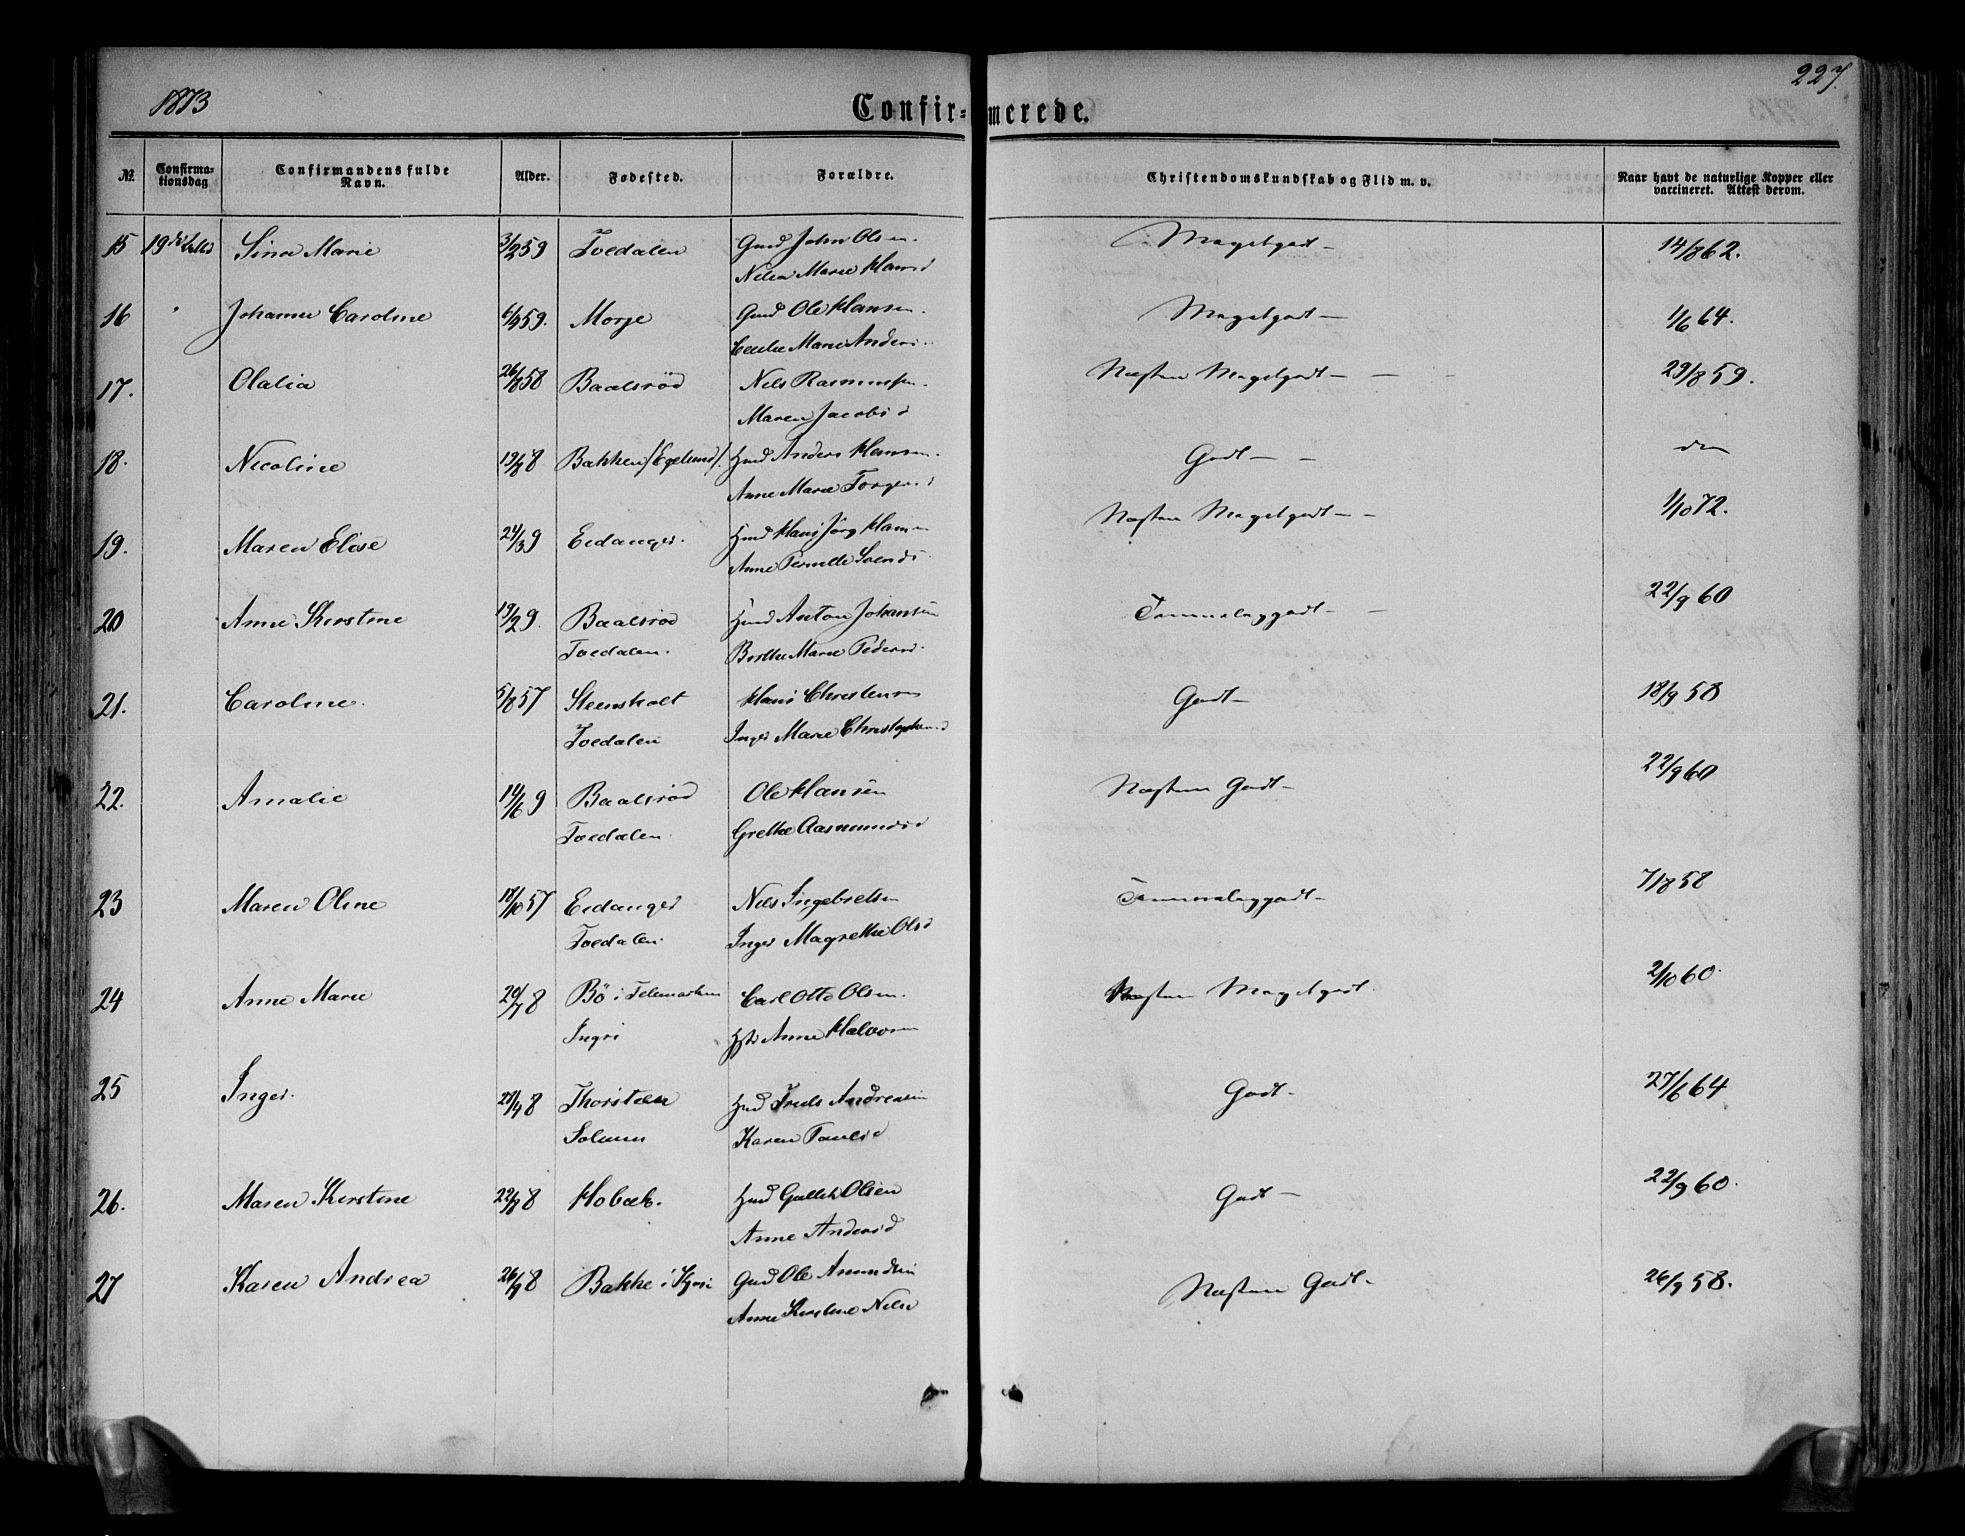 1873
Confir-merede.
227.
№. Confirma-tionsdag Confirmandens fulde Navn. Alder. Fødested. Forældre. Christendomskundskab og Flid m. v. Naar havt de naturlige Kopper eller vaccineret. Attest derom.
15 19de Sina Marie 3/2 59 Toedalen Gmd John Olsen Meget godt 14/8 62.
Marie Hansd
16 Johanne Caroline 59. Morje Gmd Ole Hansen. Meget godt 1/6 64.
Marie Anders
17. Olalia 26/8 58 Baalsrød Nils Rasmussen. Næsten Meget godt 29/8 59.
Maren Jacobsd
18. Nicoline 19/8 8 Bakken /Egelund/. Hmd Anders Hansen. Godt
Anne Marie
19. Maren Elise 24/3 9 Eidanger. Hmd Hans Jørg Hansen Næsten Meget godt 1/10 72.
Anne Pernille Svends
20 Anne Kirstine 19/2 9. Baalsrød Hmd Anton Johansen Temmelig godt 22/9 60
Toedalen. Berthe Marie Pedersd.
21. Caroline. 5/8 57 Steensholt Hans Christensen Godt 18/9 58
Toedalen Inger Marie
22. Amalie 14/6 9 Baalsrød Ole Hansen Næsten Godt 22/9 60
Toedalen Grethe Aasmundsd
23 Maren Oline 18/10 57 Eidanger Nils Ingebretsen Temmelig godt 7/8 58
Toedalen. Inger Magrethe Olsd
24 Anne Marie 20/7 8 Bö i Telemarken Carl Otto Olsen. Næsten Meget godt. 2/10 60.
Anne Halvors
25 Inger. 8 Solum Hmd Andreasen Godt 27/6 64
Karen Paulsd
26. Maren Kirstine 22/8 8 Hobæk. Hmd Olsen Godt 22/9 60.
Anne Andersd
27 Karen Andrea 26/8 8 Bakke i Gmd Ole Amundsen Næsten Godt 26/9 58.
Anne Kirstine Nilsd